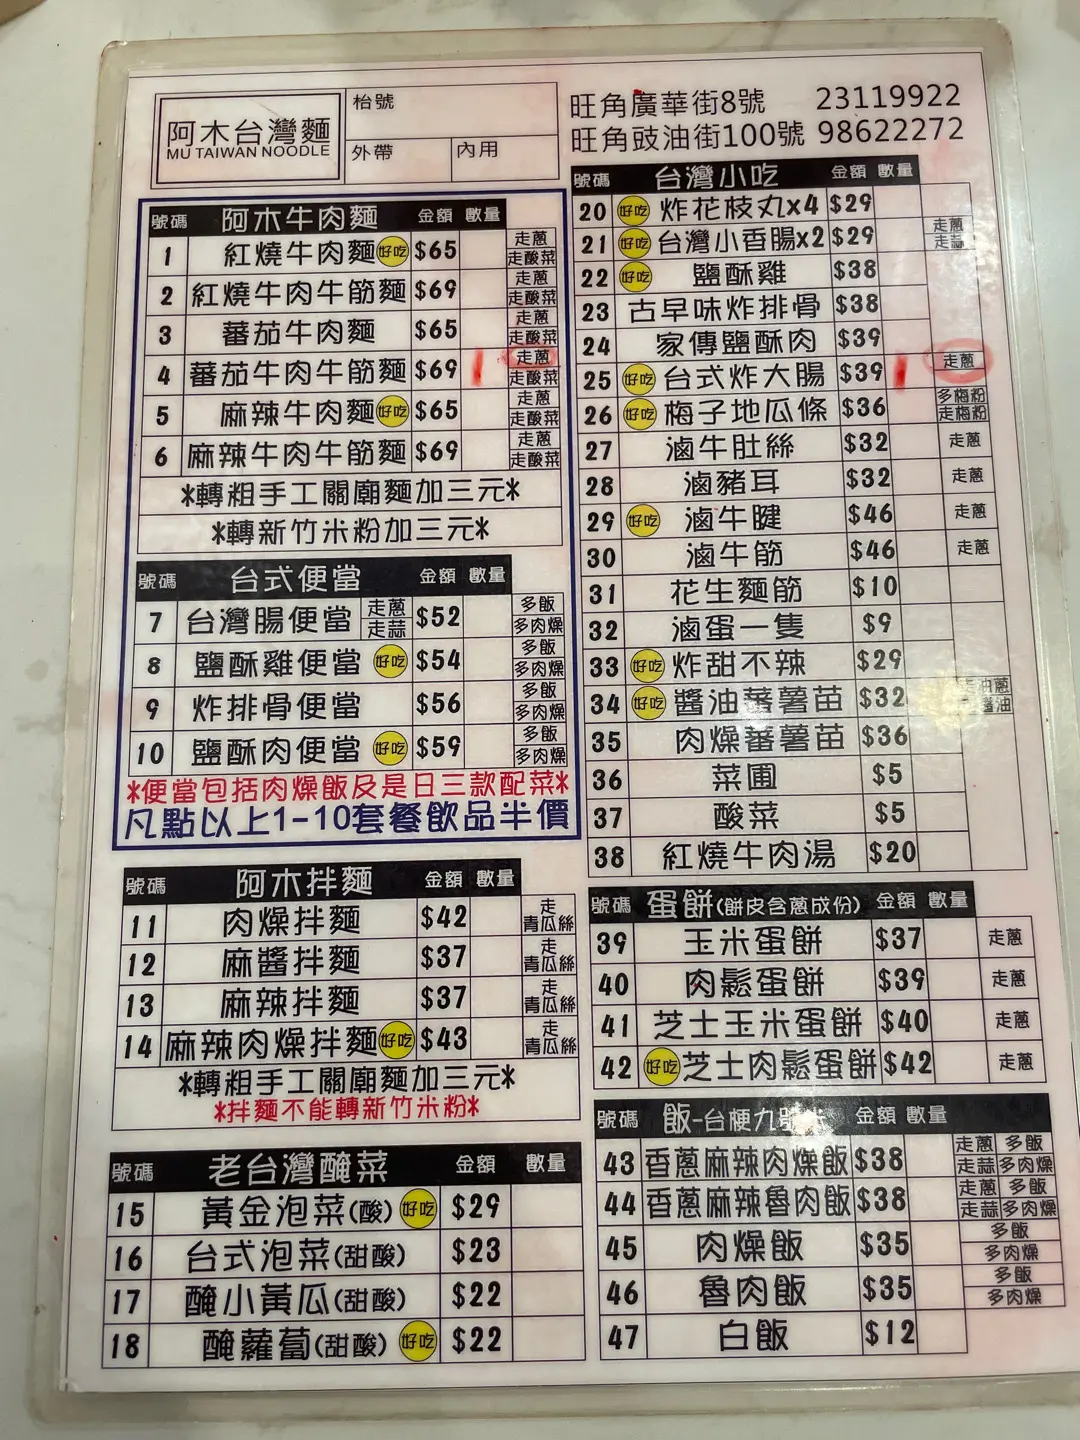 阿木台灣麵
MU TAIWAN NOODLE
枱號
外帶 內用
旺角廣華街8號 23119922
旺角豉油街100號 98622272
號碼 阿木牛肉麵 金額 數量
1 紅燒牛肉麵 好吃 $65 走蔥 走酸菜
2 紅燒牛肉牛筋麵 $69 走蔥 走酸菜
3 蕃茄牛肉麵 $65 走蔥 走酸菜
4 蕃茄牛肉牛筋麵 $69 1 走蔥 走酸菜
5 麻辣牛肉麵 好吃 $65 走蔥 走酸菜
6 麻辣牛肉牛筋麵 $69 走蔥 走酸菜
*轉粗手工關廟麵加三元*
*轉新竹米粉加三元*
號碼 台式便當 金額 數量
7 台灣腸便當 走蔥 走蒜 $52 多飯 多肉燥
8 鹽酥雞便當 好吃 $54 多飯 多肉燥
9 炸排骨便當 $56 多飯 多肉燥
10 鹽酥肉便當 好吃 $59 多飯 多肉燥
*便當包括肉燥飯及是日三款配菜*
凡點以上1-10套餐飲品半價
號碼 阿木拌麵 金額 數量
11 肉燥拌麵 $42 走青瓜絲
12 麻醬拌麵 $37 走青瓜絲
13 麻辣拌麵 $37 走青瓜絲
14 麻辣肉燥拌麵 好吃 $43 走青瓜絲
*轉粗手工關廟麵加三元*
*拌麵不能轉新竹米粉*
號碼 老台灣醃菜 金額 數量
15 黃金泡菜(酸) 好吃 $29
16 台式泡菜(甜酸) $23
17 醃小黃瓜(甜酸) $22
18 醃蘿蔔(甜酸) 好吃 $22
號碼 台灣小吃 金額 數量
20 好吃 炸花枝丸x4 $29
21 好吃 台灣小香腸x2 $29 走蔥 走蒜
22 好吃 鹽酥雞 $38
23 古早味炸排骨 $38
24 家傳鹽酥肉 $39
25 好吃 台式炸大腸 $39 1 走蔥
26 好吃 梅子地瓜條 $36 多梅粉 走梅粉
27 滷牛肚絲 $32 走蔥
28 滷豬耳 $32 走蔥
29 好吃 滷牛腱 $46 走蔥
30 滷牛筋 $46 走蔥
31 花生麵筋 $10
32 滷蛋一隻 $9
33 好吃 炸甜不辣 $29
34 好吃 醬油蕃薯苗 $32 油蔥 醬油
35 肉燥蕃薯苗 $36
36 菜圃 $5
37 酸菜 $5
38 紅燒牛肉湯 $20
號碼 蛋餅(餅皮含蔥成份) 金額 數量
39 玉米蛋餅 $37 走蔥
40 肉鬆蛋餅 $39 走蔥
41 芝士玉米蛋餅 $40 走蔥
42 好吃 芝士肉鬆蛋餅 $42 走蔥
號碼 飯-台梗九號 金額 數量
43 香蔥麻辣肉燥飯 $38 走蔥 多飯 走蒜 多肉燥
44 香蔥麻辣魯肉飯 $38 走蔥 多飯 走蒜 多肉燥
45 肉燥飯 $35 多飯 多肉燥
46 魯肉飯 $35 多飯 多肉燥
47 白飯 $12